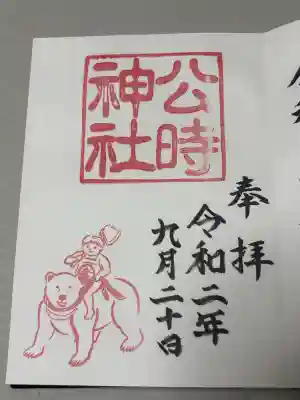 公時
神社
奉拝
令和二年
九月二十日